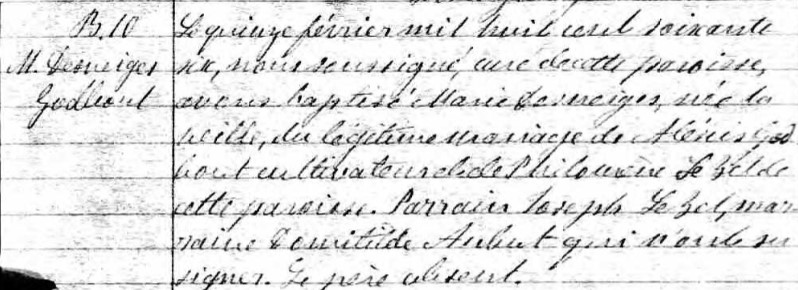 B.10
M. Desneiges
Godbout
Le quinze février mil huit cent soixante
six, nous soussigné, curé de cette paroisse,
avons baptisé Marie Desneiges, née la
veille, du légitime mariage de Alexis God
bout cultivateur et de Philomène Lebel de
cette paroisse. Parrain Joseph Lebel, mar
raine Domitilde Aubut qui n'ont su
signer. Le père absent.